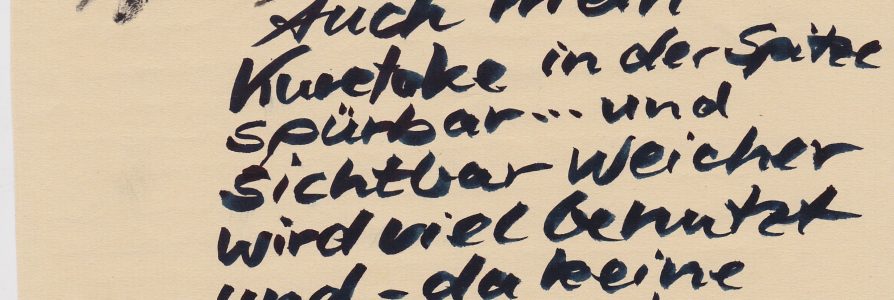 Auch mein
Kuretake in der Spitze
spürbar... und
sichtbar weicher
wird viel benutzt
und - da keine